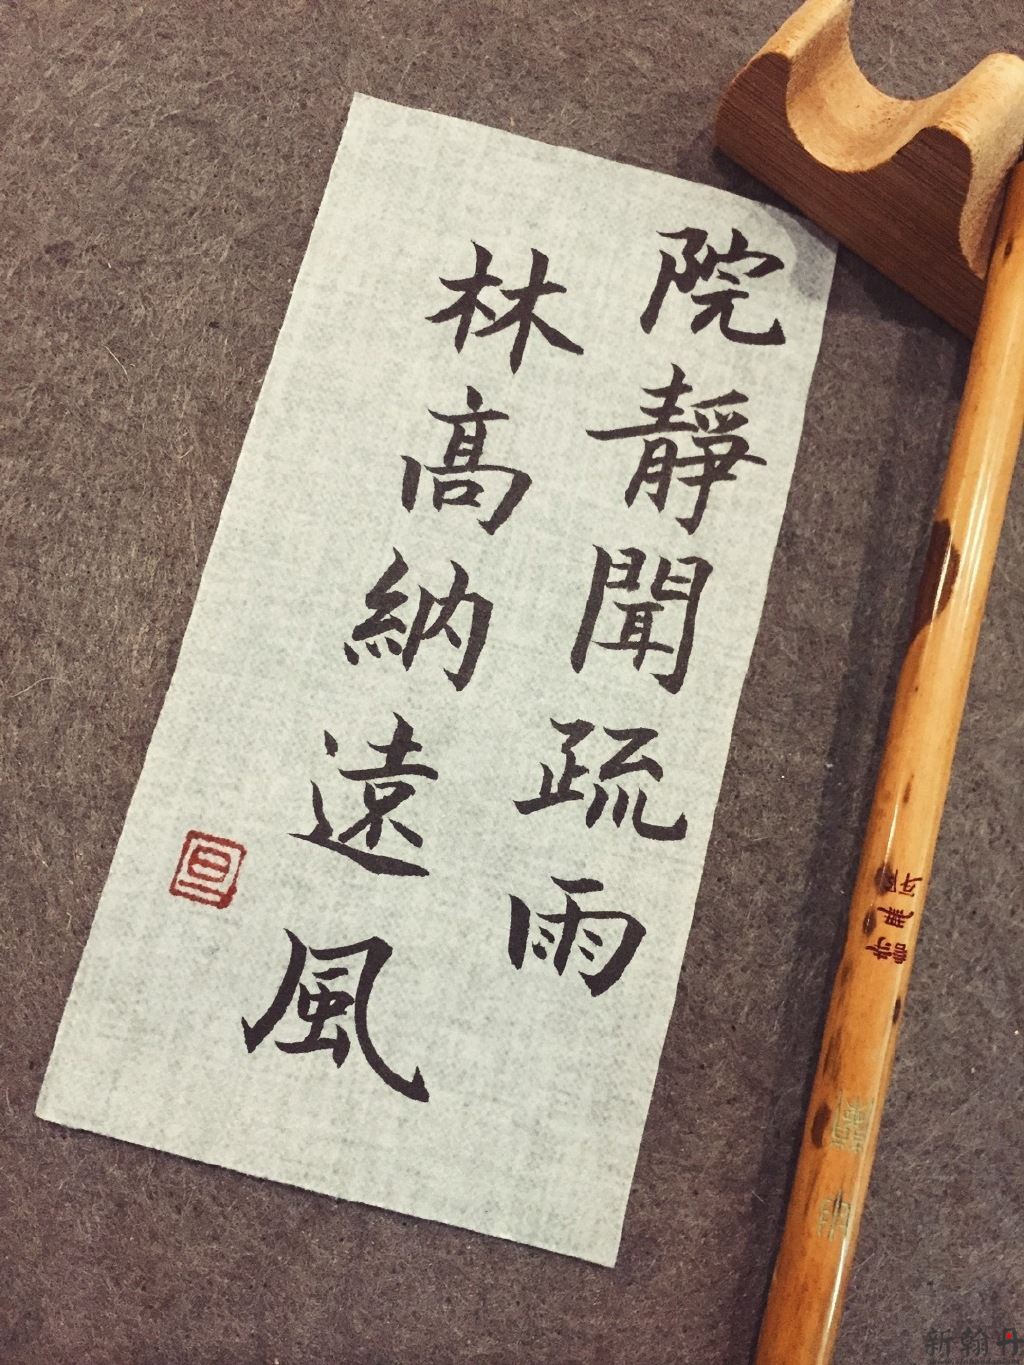 院靜聞疏雨
林高納遠風